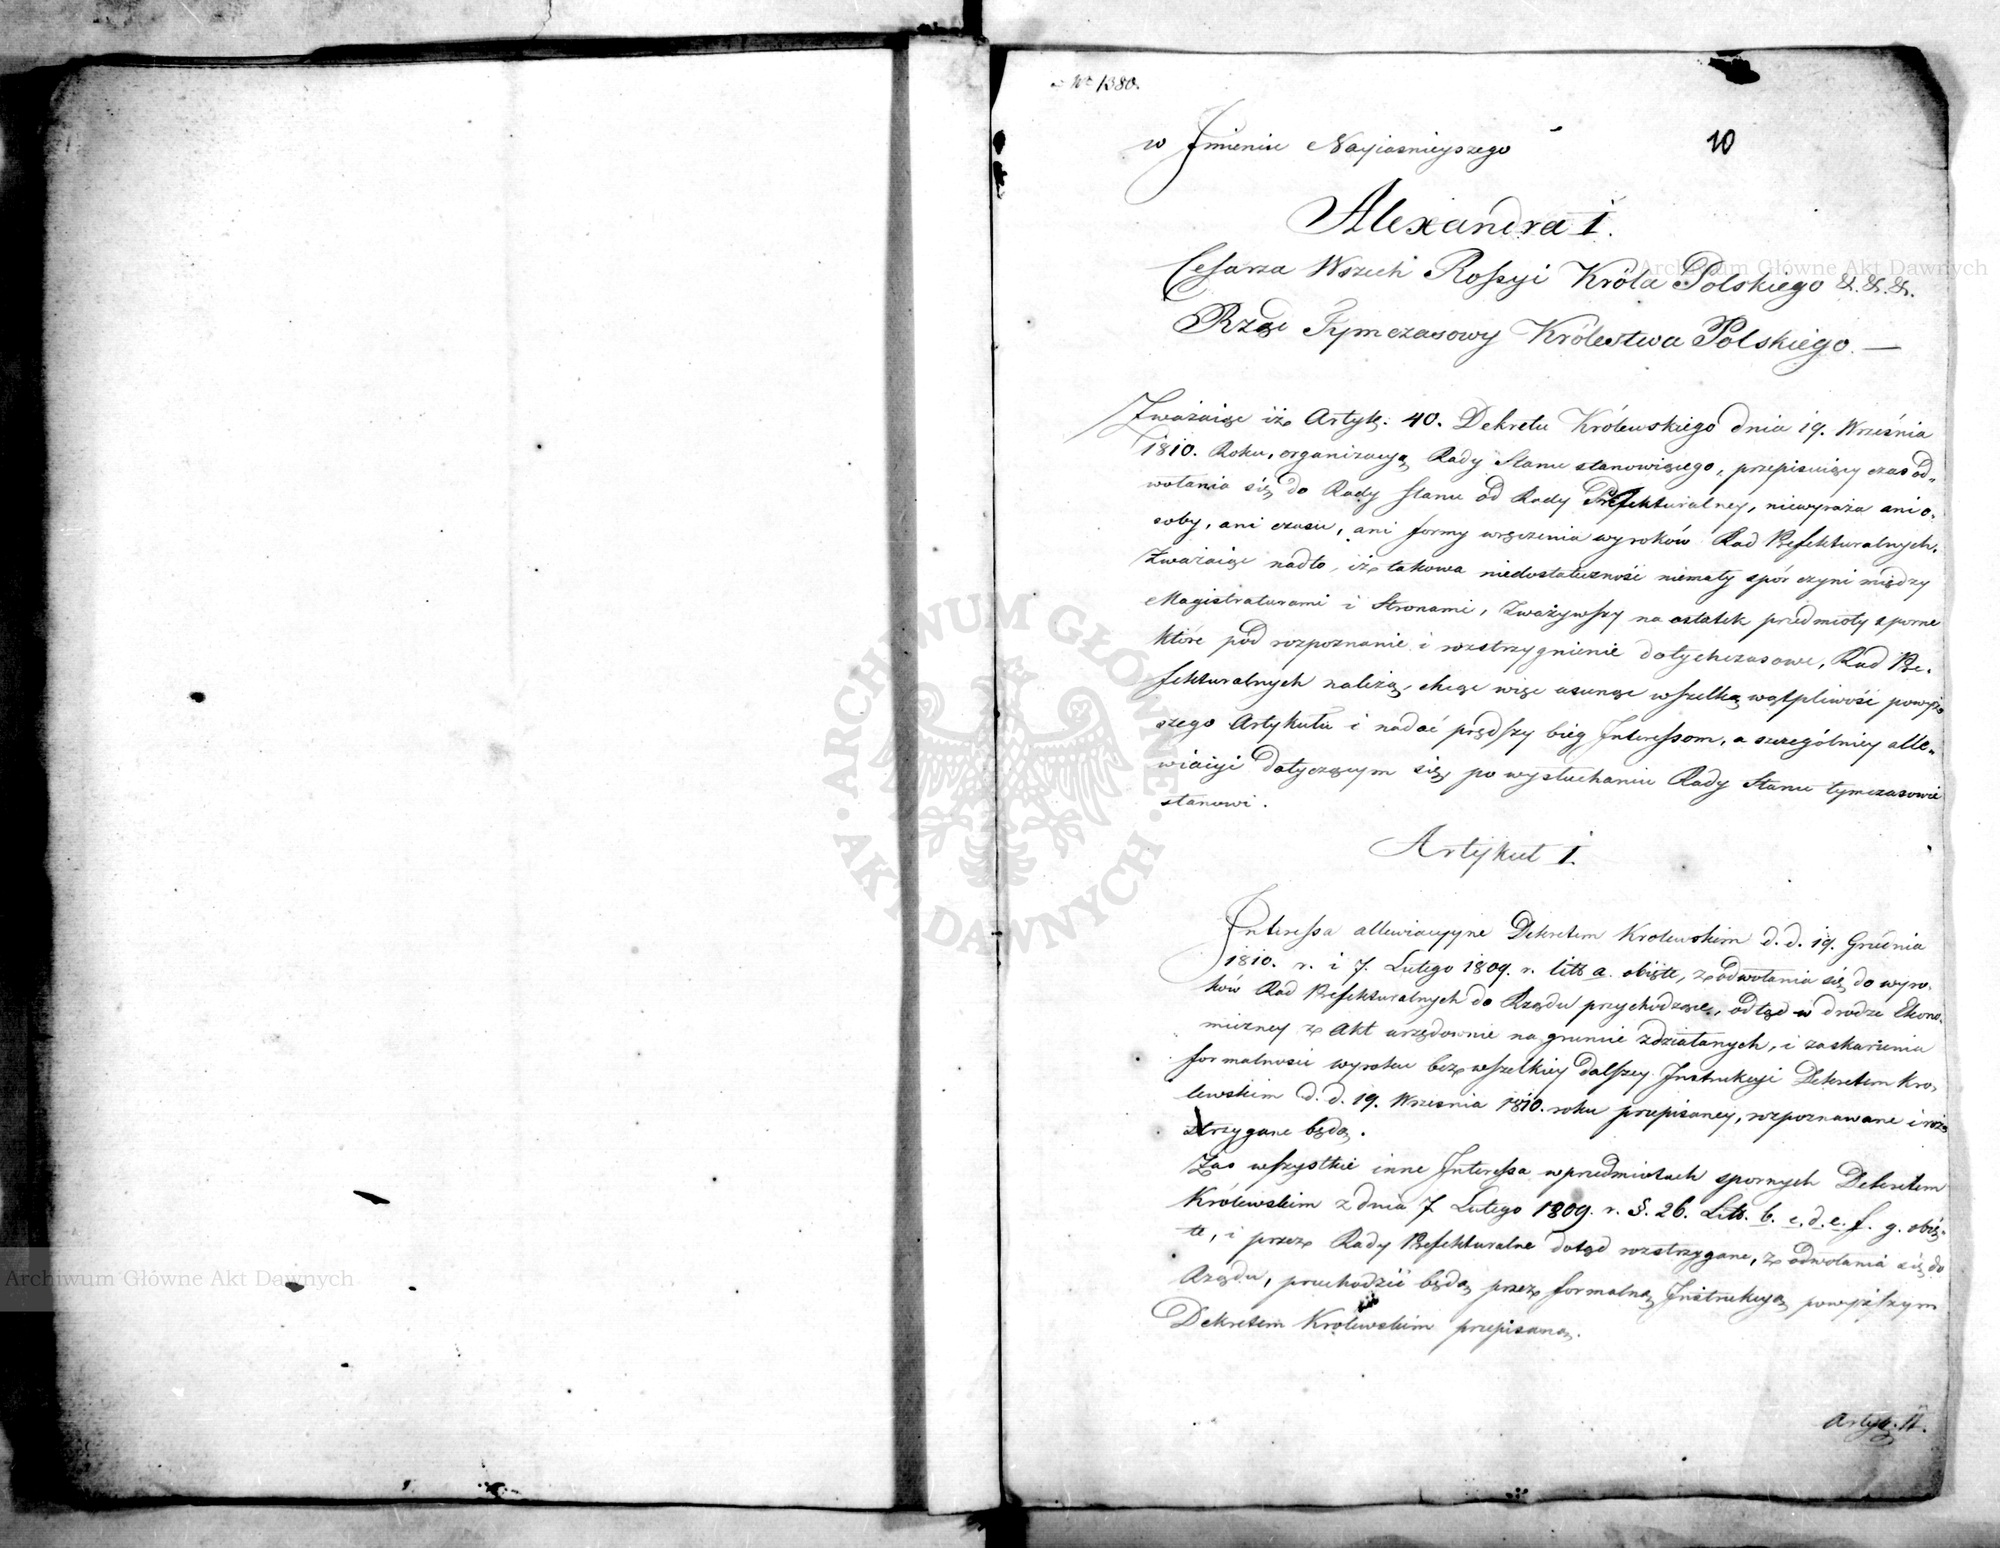 No 1380.
10
w Jmieniu Nayiaśnieyszego
Alexandra I.
Cesarza Wszech Rossyi Króla Polskiego &. &. &.
Rząd Tymczasowy Królestwa Polskiego. —
Zważaiąc iż Artyk: 40. Dekretu Królewskiego dnia 19. Września
1810. Roku, organizacyą Rady Stanu stanowiącego, przepisuiący czas od-
wołania się do Rady stanu od Rady Prefekturalney, niewyraża ani o-
soby, ani czasu, ani formy wręczenia wyroków Rad Prefekturalnych.
Zważaiąc nadto, iż takowa niedostateczność niemały spór czyni między
Magistraturami i Stronami, Zważywszy na ostatek przedmioty sporne
które pod rozpoznanie i rozstrzygnienie dotychczasowe, Rad Pre-
fekturalnych należą, chcąc więc usunąć wszelką wątpliwość powyż
szego Artykułu i nadać prędszy bieg Interessom, a szczególniey alle-
wiacyi dotyczącym się, po wysłuchaniu Rady Stanu tymczasowie
stanowi.
Artykuł I.
Interessa allewiacyyne Dekretem Krolewskim d. d. 19. Grudnia
1810. r. i 7. Lutego 1809. r. litt a. obięte, z odwołania się do wyro-
ków Rad Prefekturalnych do Rządu przychodzące, odtąd w drodze Ekono-
miczney z Akt urzędownie na gruncie zdziałanych, i zaskarżenia
formalności wyroku bez wszelkiey dalszey Instrukcyi Dekretem Kro-
lewskim d. d. 19. Września 1810. roku przepisaney, rozpoznawane i roz
strzygane będą.
Zas wszystkie inne Interessa w przedmiotach spornych Dekretem
Królewskim z dnia 7 Lutego 1809. r. §. 26. Litt. b. c. d. e. f. g. obię-
te, i przez Rady Prefekturalne dotąd rozstrzygane, z odwołania się do
Rządu, przechodzić będą przez formalną Instrukcyą powyższym
Dekretem Krolewskim przepisaną.
Artyk. II.
Archiwum Główne Akt Dawnych
Archiwum Główne Akt Dawnych
ARCHIWUM GŁÓWNE · AKT DAWNYCH ·